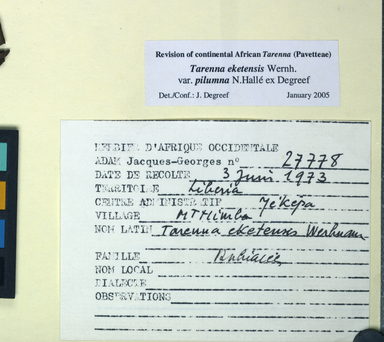 Revision of continental African Tarenna (Pavetteae)
Tarenna eketensis Wernh.
var. pilumna N.Hallé ex Degreef
Det./Conf.: J. Degreef January 2005
HERBIER D'AFRIQUE OCCIDENTALE
ADAM Jacques-Georges n° 27778
DATE DE RECOLTE 3 Juin 1973
TERRITOIRE Liberia
CENTRE ADMINISTRATIF Yéképa
VILLAGE Mt Nimba
NOM LATIN Tarenna eketensis Wernham
FAMILLE Rubiacée
NOM LOCAL
DIALECTE
OBSERVATIONS